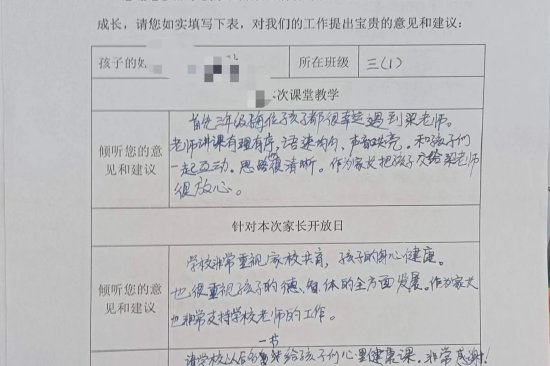 成长，请您如实填写下表，对我们的工作提出宝贵的意见和建议：
孩子的姓
所在班级
三(1)
本次课堂教学
倾听您的意见和建议
首先三年级每位孩子都很幸运遇到梁老师。
老师讲课有理有序，语速均匀，声音洪亮。和孩子们
一起互动。思路很清晰。作为家长把孩子交给梁老师
很放心。
针对本次家长开放日
倾听您的意见和建议
学校非常重视家校共育，孩子的身心健康。
也很重视孩子的德、智、体的全方面发展。作为家长
也非常支持学校老师的工作。
一节
请学校以后多给孩子们心里健康课。非常感谢！